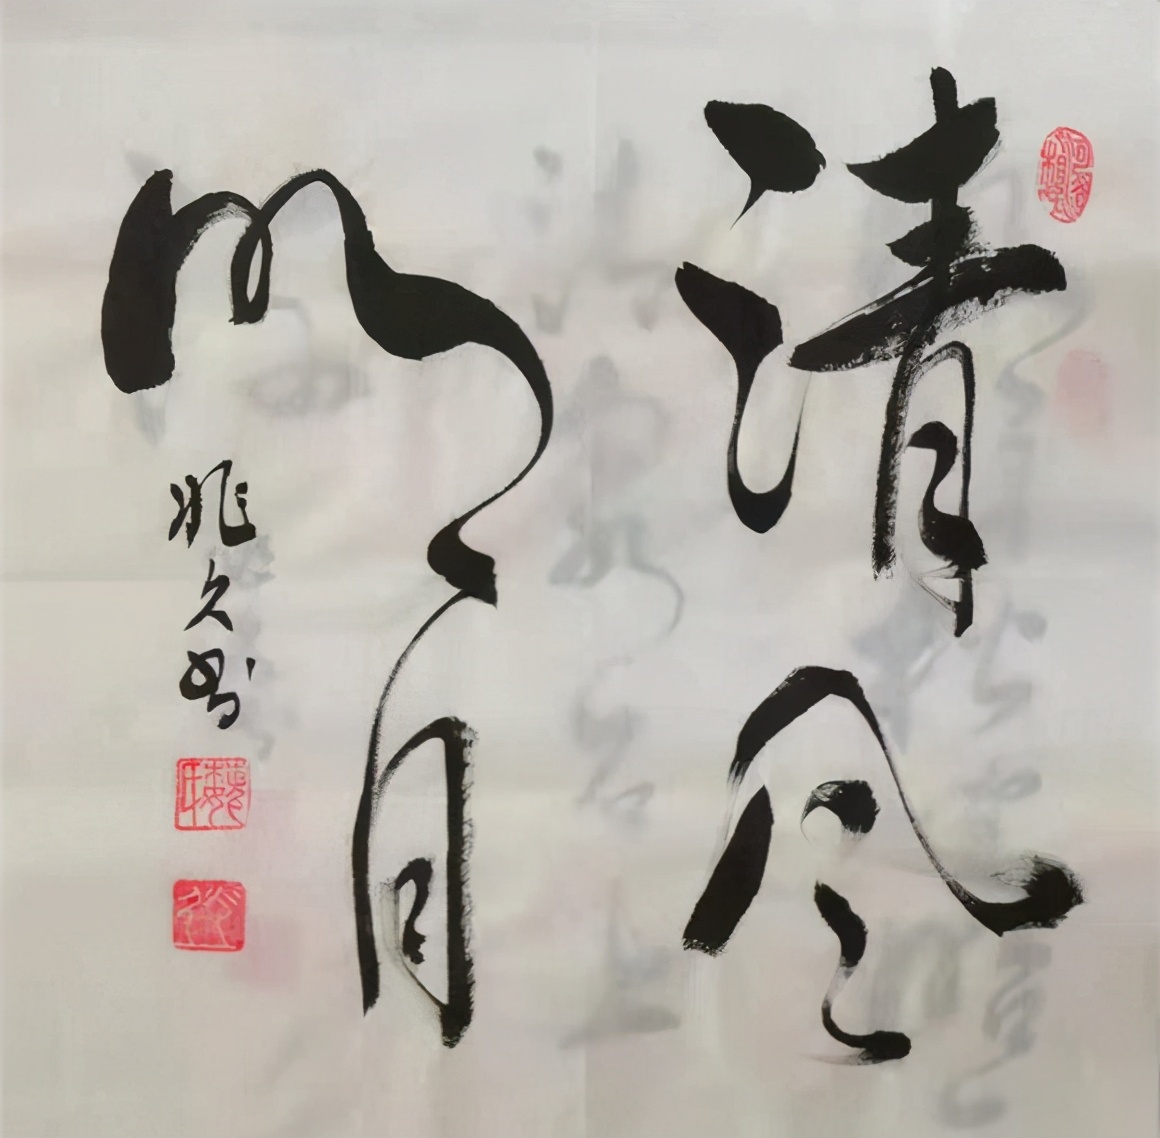 清风
明月
兆久书